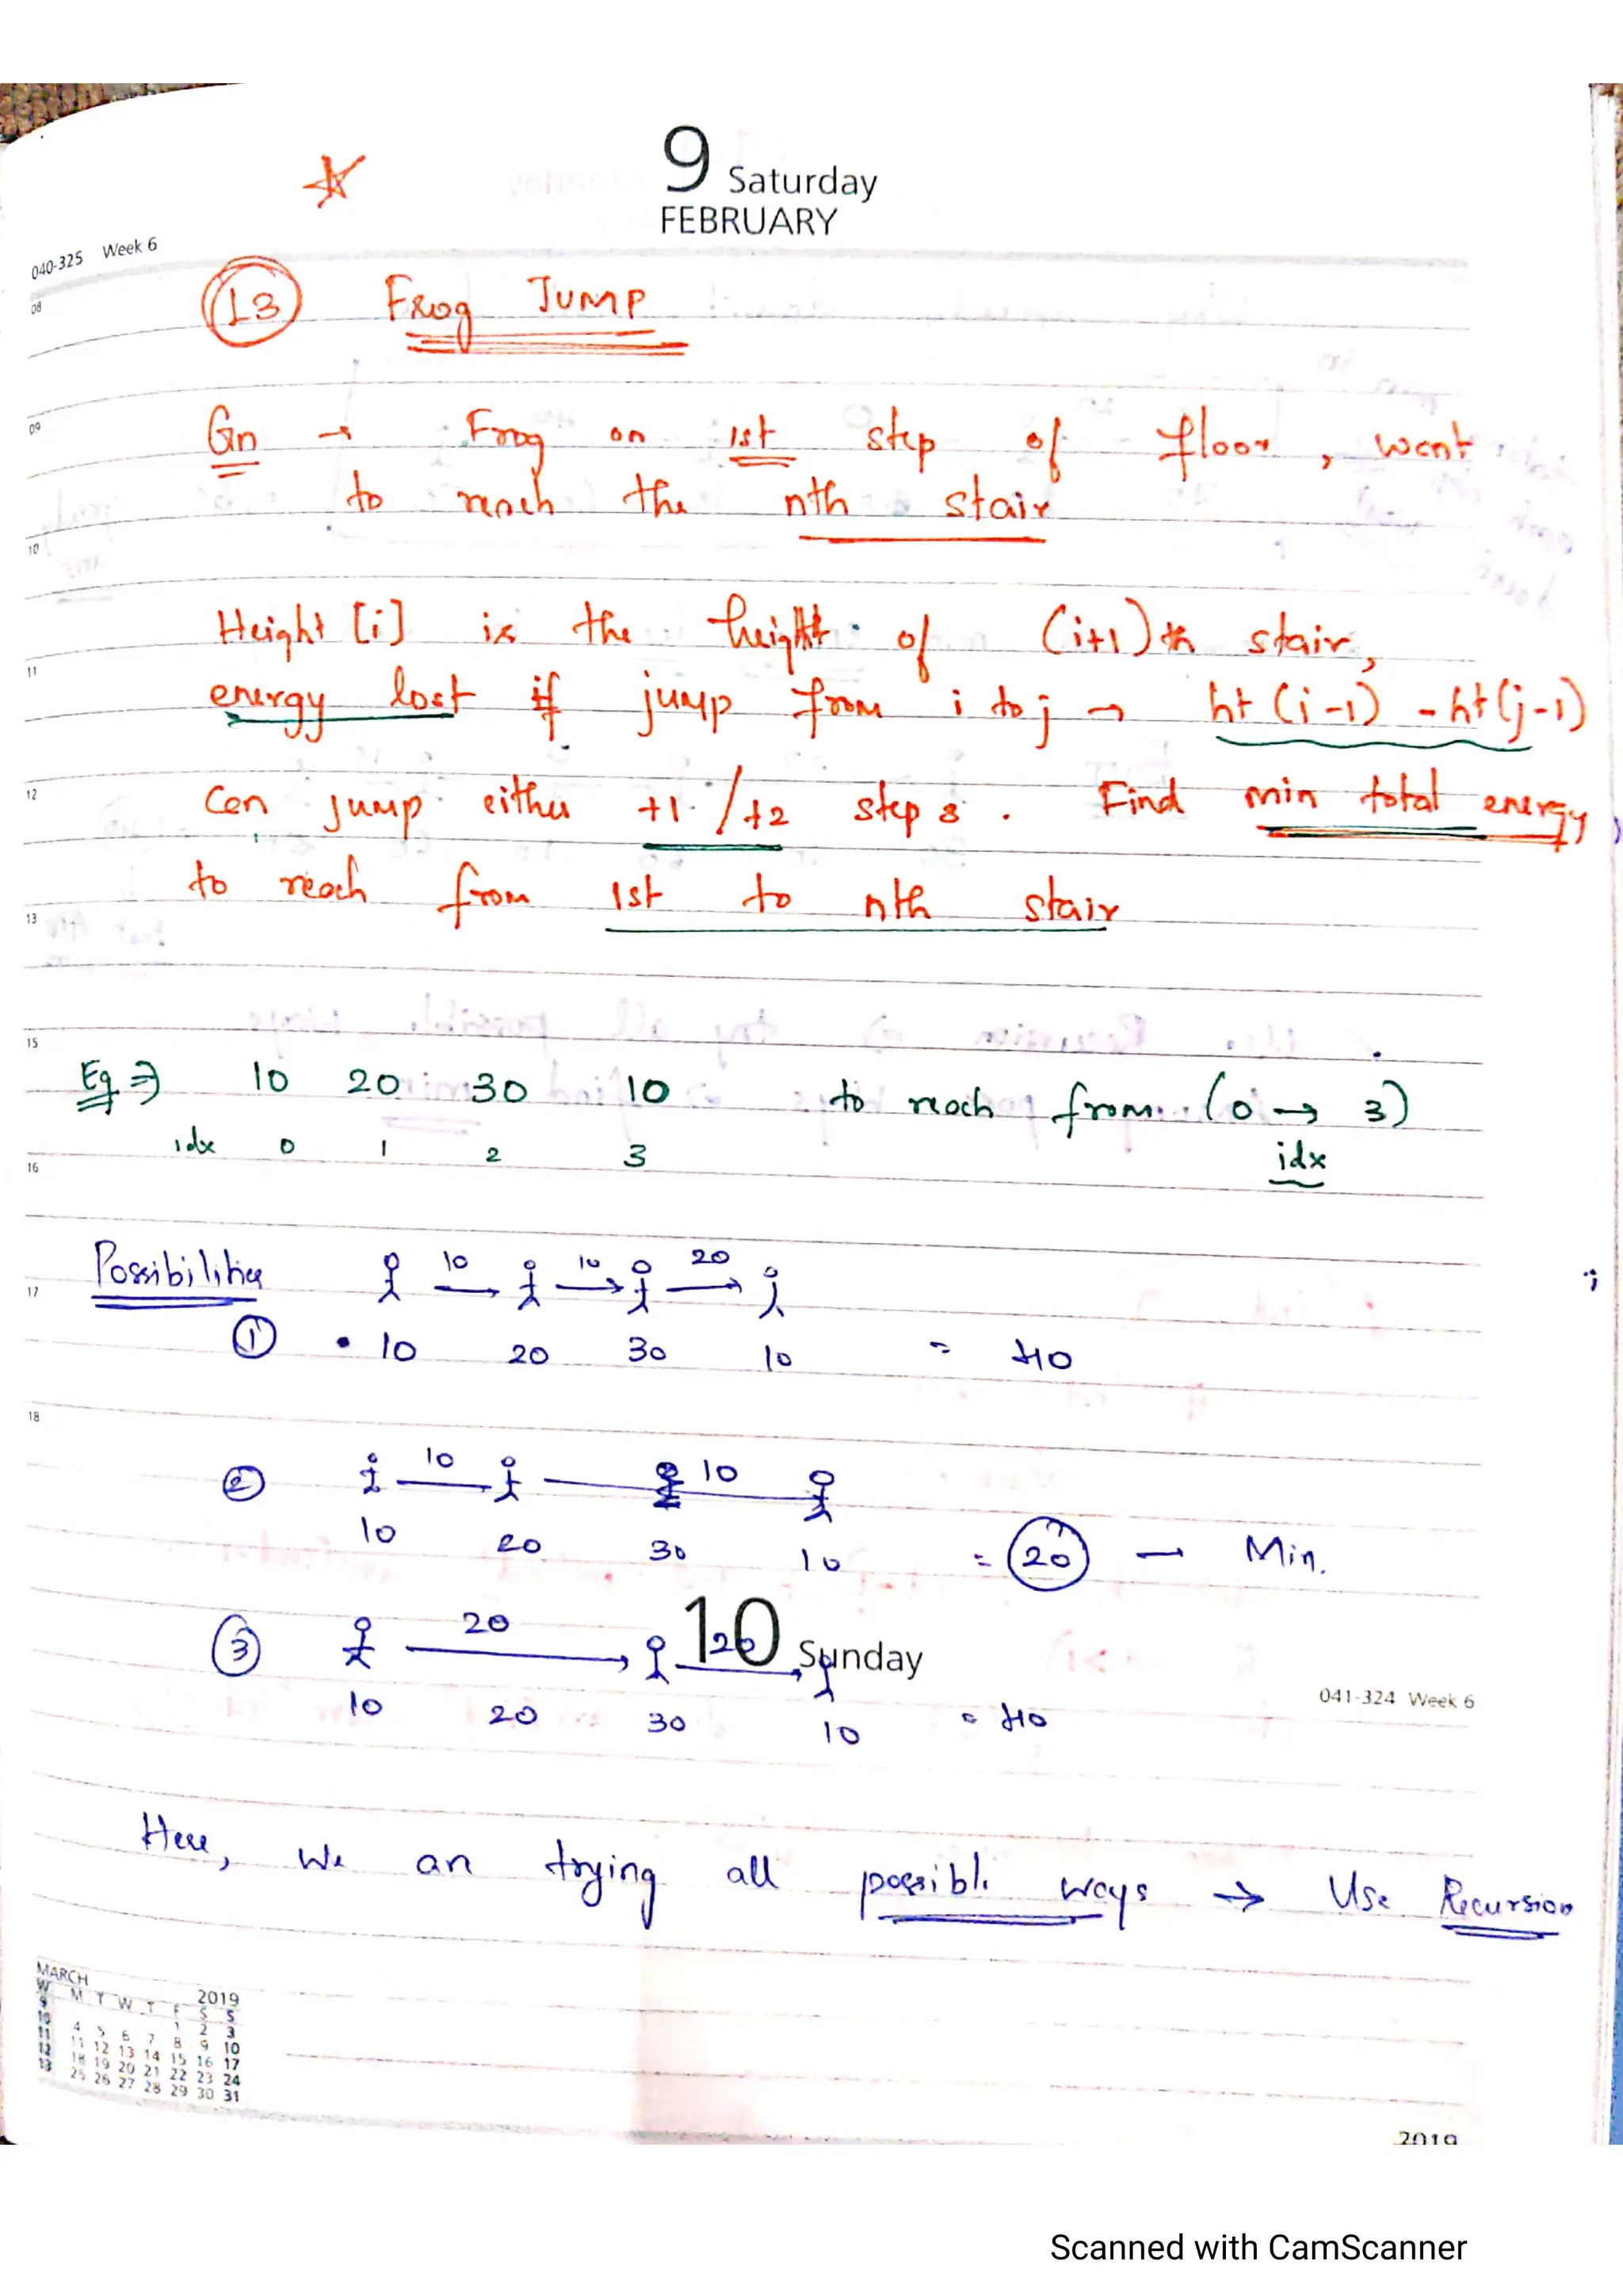 9 Saturday
FEBRUARY
040-325 Week 6
08
13 Frog JUMP
09
Gn → Frog on 1st step of floor, want
to reach the nth stair
10
Height [i] is the height of (i+1)th stair,
11
energy lost if jump from i to j → ht (i-1) - ht(j-1)
12
Can jump either +1 / +2 steps. Find min total energy,
to reach from 1st to nth stair
13
15
Eg ⇒ 10 20 30 10 to reach from (0 → 3)
idx 0 1 2 3 idx
16
Possibilities 10 10 20
17
1 10 20 30 10 = 40
18
2 10 10
10 20 30 10 = 20 — Min.
10 Sunday
3 20 20
041-324 Week 6
10 20 30 10 = 40
Here, we are trying all possible ways → Use Recursion
MARCH 2019
W M T W T F S S
9 1 2 3
10 4 5 6 7 8 9 10
11 11 12 13 14 15 16 17
12 18 19 20 21 22 23 24
13 25 26 27 28 29 30 31
2019
Scanned with CamScanner